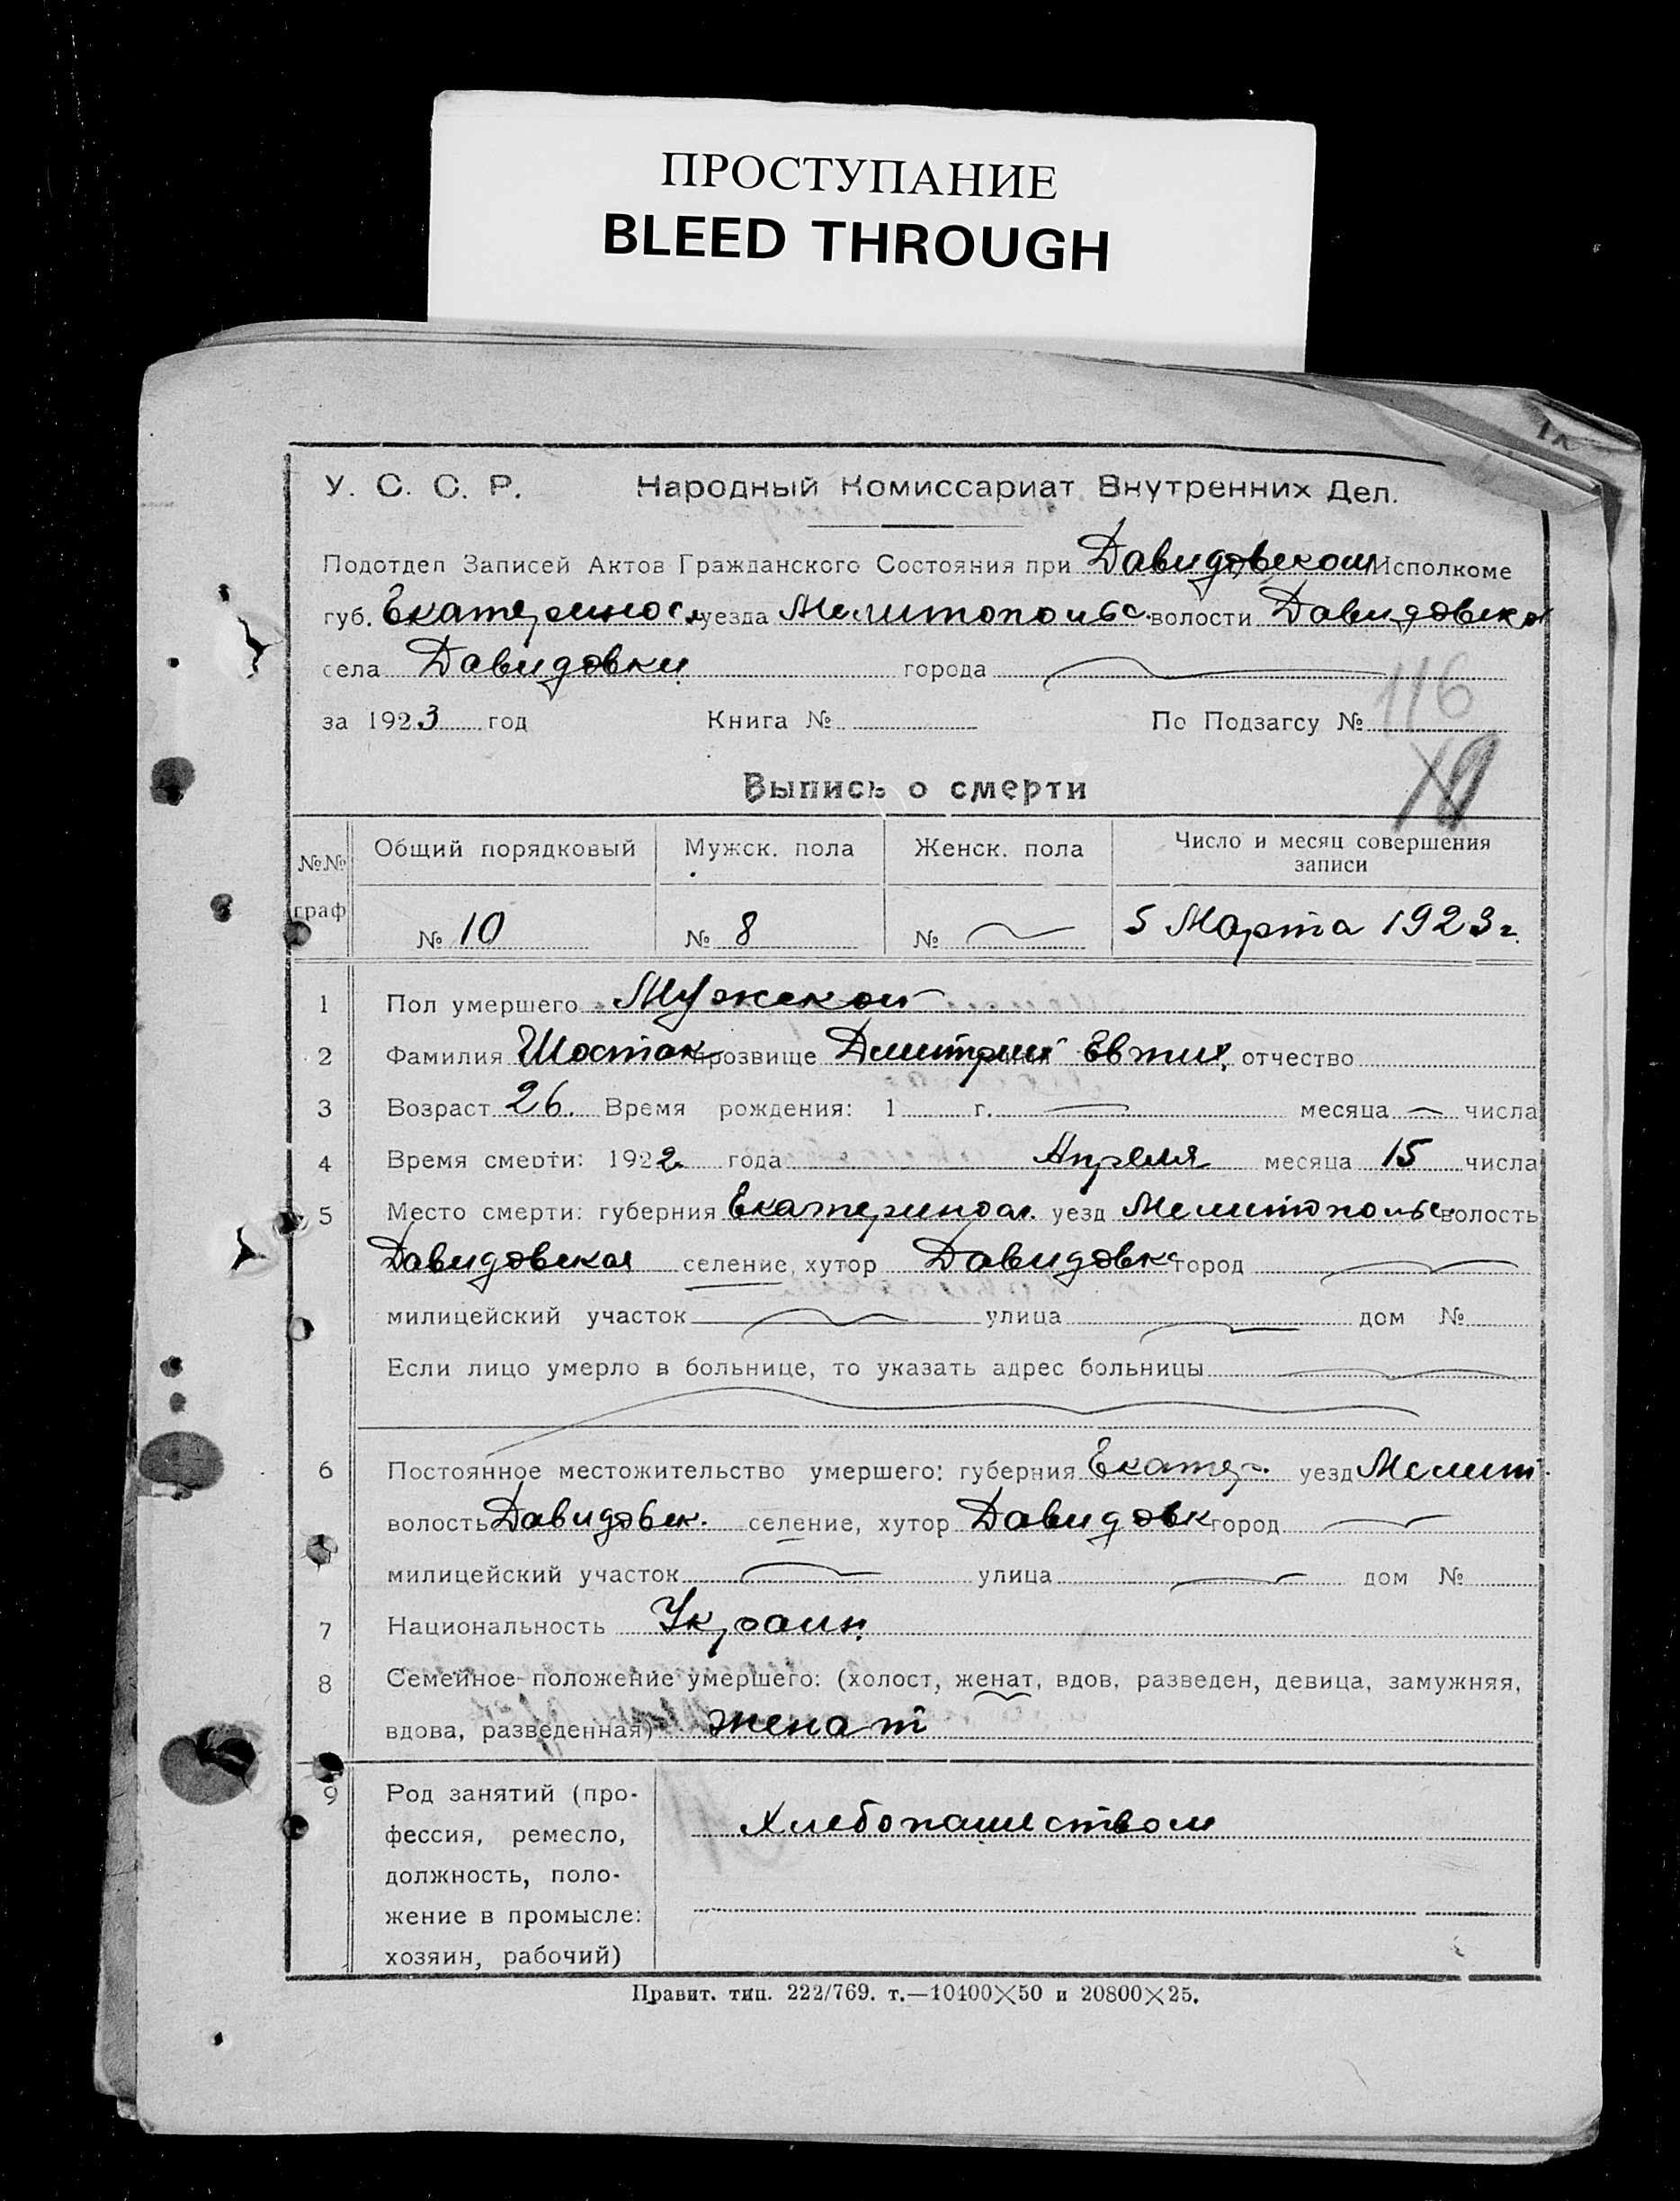 ПРОСТУПАНИЕ
BLEED THROUGH
У. С. С. Р. Народный Комиссариат Внутренних Дел.
Подотдел Записей Актов Гражданского Состояния при Давидовском Исполкоме
губ. Екатеринос. уезда Мелитопольс. волости Давидовска
села Давидовки города
за 1923 год Книга № По Подзагсу № 116
Выпись о смерти
№№ граф Общий порядковый Мужск. пола Женск. пола Число и месяц совершения записи
№ 10 № 8 № 5 Марта 1923 г.
1 Пол умершего Мужской
2 Фамилия Шостак прозвище Дмитрий Евтих. отчество
3 Возраст 26. Время рождения: 1 г. месяца числа
4 Время смерти: 1922 года Апреля месяца 15 числа
5 Место смерти: губерния Екатериносл. уезд Мелитопольс. волость
Давидовская селение, хутор Давидовка город
милицейский участок улица дом №
Если лицо умерло в больнице, то указать адрес больницы
6 Постоянное местожительство умершего: губерния Екатер. уезд Мелит.
волость Давидовск. селение, хутор Давидовк город
милицейский участок улица дом №
7 Национальность Украин.
8 Семейное положение умершего: (холост, женат, вдов, разведен, девица, замужняя,
вдова, разведенная) женат
9 Род занятий (про-
фессия, ремесло, Хлебопашеством
должность, поло-
жение в промысле:
хозяин, рабочий)
Правит. тип. 222/769. т.—10400×50 и 20800×25.